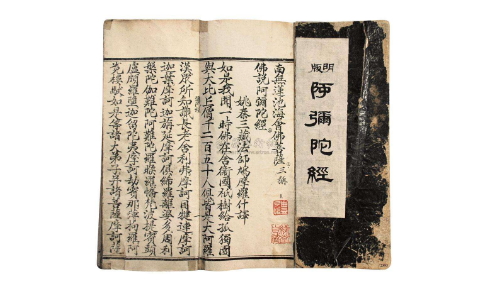 明版
阿彌陀經
南無蓮池海會佛菩薩 三稱
佛說阿彌陀經
姚秦三藏法師鳩摩羅什譯
如是我聞一時佛在舍衛國祇樹給孤獨園
與大比丘僧千二百五十人俱皆是大阿羅
漢衆所知識長老舍利弗摩訶目犍連摩訶
迦葉摩訶迦旃延摩訶俱絺羅離婆多周利
槃陀伽難陀阿難陀羅睺羅憍梵波提賓頭
盧頗羅墮迦留陀夷摩訶劫賓那薄拘羅阿
㝹樓馱如是等諸大弟子并諸菩薩摩訶薩